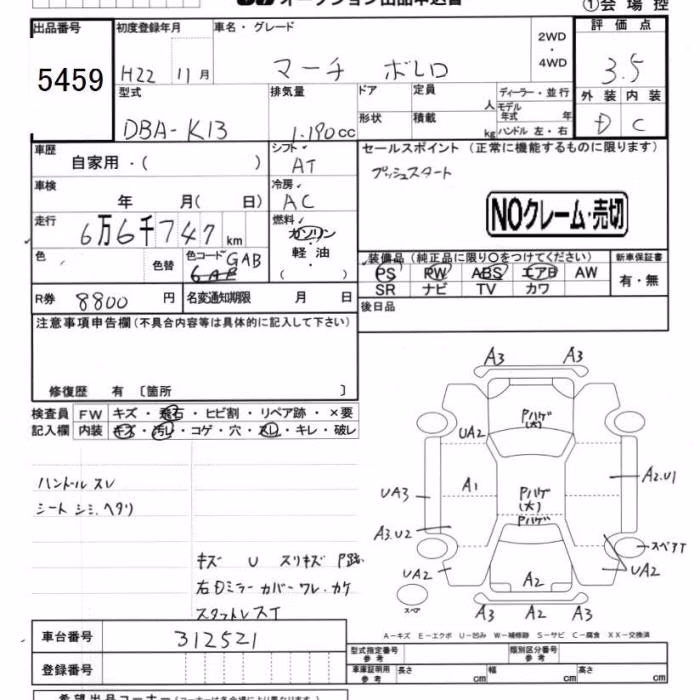 オークション出品申込書
①会場控
出品番号
5459
初度登録年月
H22 11月
車名・グレード
マーチ ボレロ
2WD
・
4WD
評価点
3.5
型式
DBA-K13
排気量
1.190cc
ドア
定員
人
形状
積載
kg
ディーラー・並行
モデル年式 年
ハンドル 左・右
外装 内装
D C
車歴
自家用・( )
シフト
AT
セールスポイント (正常に機能するものに限ります)
プッシュスタート
車検
年 月( 日)
冷房
AC
NOクレーム・売切
走行
6万6千747km
燃料
ガソリン
・
軽油
・
( )
色
色替
色コード
GAB
装備品 (純正品に限り○をつけてください)
新車保証書
PS PW ABS エアB AW
SR ナビ TV カワ
有・無
R券 8800円
名変通知期限 月 日
後日品
注意事項申告欄 (不具合内容等は具体的に記入して下さい)
修復歴 有 〔箇所 〕
検査員記入欄
FW キズ・飛石・ヒビ割・リペア跡・×要
内装 キズ・汚レ・コゲ・穴・スレ・キレ・破レ
ハンドルスレ
シート シミ、ヘタリ
キズ U スリキズ P跡
右Dミラーカバーワレ・カケ
スタットレスT
A3 A3
Pハゲ
(大)
UA2
A1
UA3
Pハゲ
(大)
Pハゲ
A2.U1
A3.U2
スペアT
UA2
UA2
A2
スペア
A3 A2 A3
A-キズ E-エクボ U-凹み W-補修跡 S-サビ C-腐食 XX-交換済
車台番号
312521
登録番号
型式指定番号
参考
類別区分番号
参考
車庫証明用
参考
長さ cm
幅 cm
高さ cm
希望出品コーナー